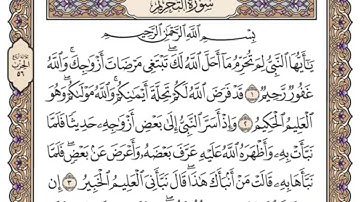 سُورَةُ التَّحْرِيمِ
بِسْمِ اللَّهِ الرَّحْمَٰنِ الرَّحِيمِ
يَا أَيُّهَا النَّبِيُّ لِمَ تُحَرِّمُ مَا أَحَلَّ اللَّهُ لَكَ تَبْتَغِي مَرْضَاتَ أَزْوَاجِكَ وَاللَّهُ
غَفُورٌ رَّحِيمٌ ١ قَدْ فَرَضَ اللَّهُ لَكُمْ تَحِلَّةَ أَيْمَانِكُمْ وَاللَّهُ مَوْلَاكُمْ وَهُوَ
الْعَلِيمُ الْحَكِيمُ ٢ وَإِذْ أَسَرَّ النَّبِيُّ إِلَىٰ بَعْضِ أَزْوَاجِهِ حَدِيثًا فَلَمَّا
نَبَّأَتْ بِهِ وَأَظْهَرَهُ اللَّهُ عَلَيْهِ عَرَّفَ بَعْضَهُ وَأَعْرَضَ عَن بَعْضٍ فَلَمَّا
نَبَّأَهَا بِهِ قَالَتْ مَنْ أَنبَأَكَ هَٰذَا قَالَ نَبَّأَنِيَ الْعَلِيمُ الْخَبِيرُ ٣ إِن
الحزب
٥٦